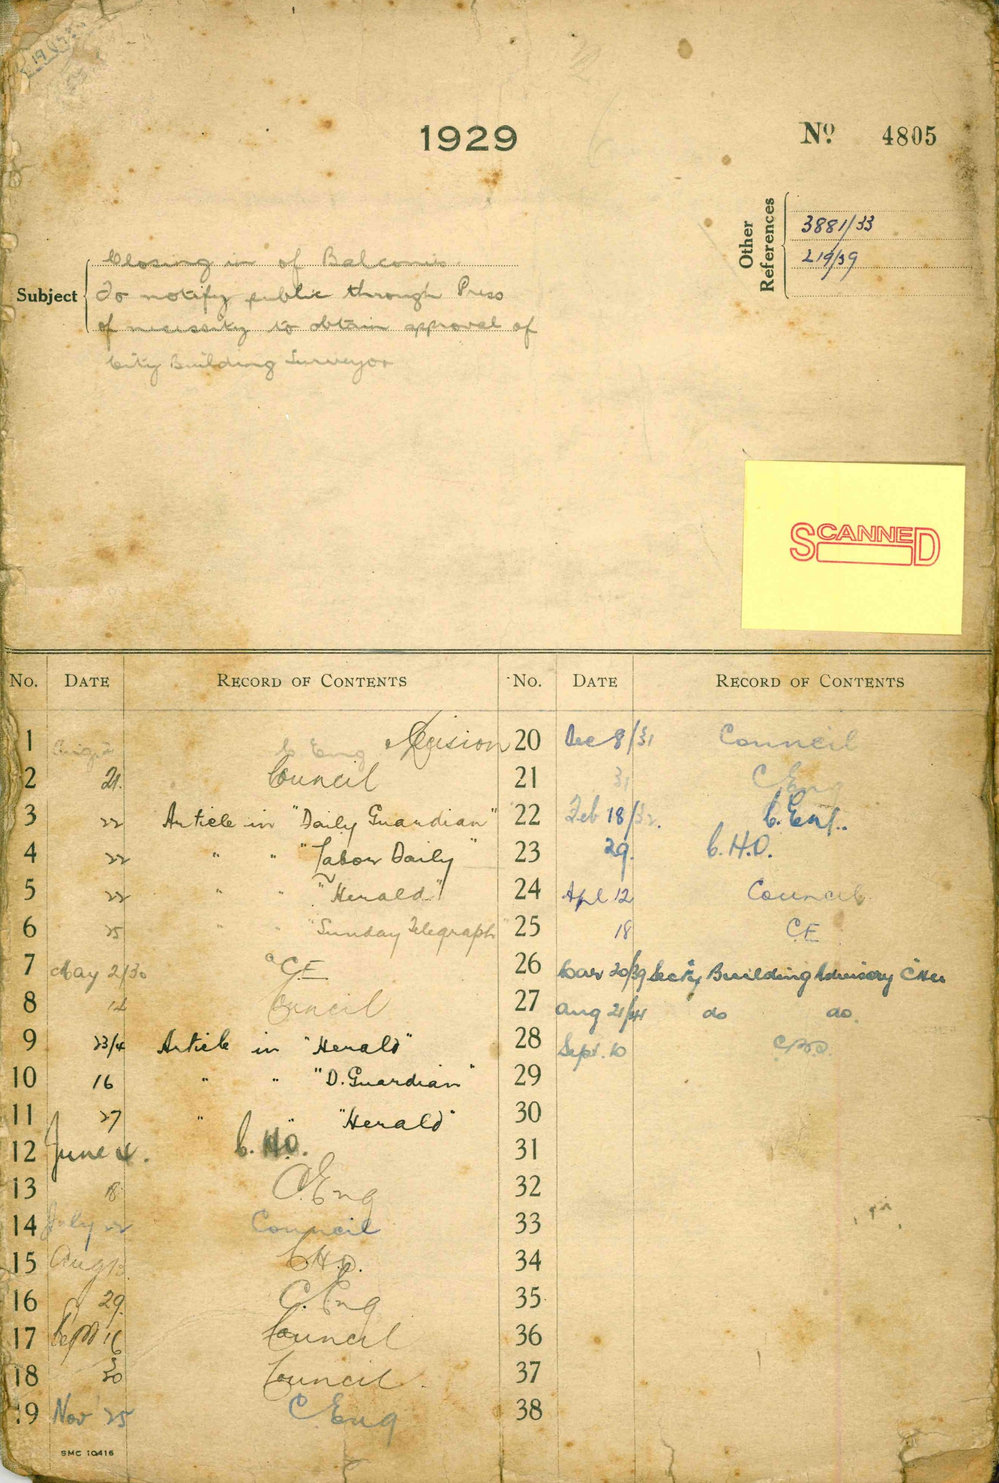 1929
No. 4805
Other References
3881/33
219/39
Subject
Closing in of Balconies.
To notify public through Press
of necessity to obtain approval of
City Building Surveyor
SCANNED
No. DATE RECORD OF CONTENTS
1 Aug 2 C Eng Decision
2 21. Council
3 22 Article in "Daily Guardian"
4 22 " " "Labor Daily"
5 22 " " "Herald"
6 25 " " "Sunday Telegraph"
7 May 2/30 CE
8 14 Council
9 23/4 Article in "Herald"
10 16 " " "D. Guardian"
11 27 " " "Herald"
12 June 4. C.H.O.
13 18 C. Eng
14 July 22 Council
15 Aug C.H.O.
16 29. C. Eng
17 Sept 16 Council
18 30 Council.
19 Nov 25 C Eng
SMC 10416
No. DATE RECORD OF CONTENTS
20 Dec 8/31 Council
21 31 C Eng
22 Feb 18/32. C. Eng.
23 29. C.H.O.
24 Apl 12 Council
25 18 CE
26 20/39 Secty Building Advisory Ctee
27 Aug 21/41 do do.
28 Sept. 10
29
30
31
32
33
34
35
36
37
38